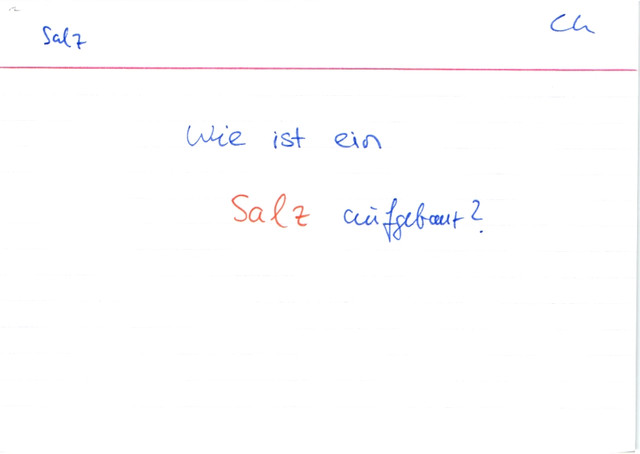 Salz
Ch
Wie ist ein
Salz aufgebaut?